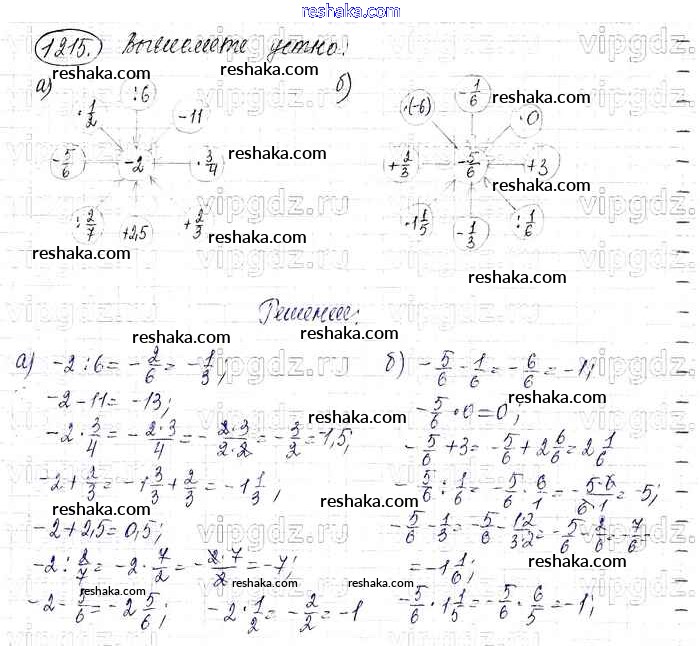 reshaka.com
1215. Вычислите устно:
а) б)
: 6
· 1/2
-11
- 5/6
-2
· 3/4
: 2/7
+2,5
+ 2/3
- 1/6
·(-6)
·0
+ 2/3
- 5/6
+3
·1 1/5
- 1/3
: 1/6
Решение:
а) -2 : 6 = - 2/6 = - 1/3;
-2 - 11 = -13;
-2 · 3/4 = - 2·3/4 = - 2·3/2·2 = - 3/2 = 1,5;
-2 + 2/3 = -1 3/3 + 2/3 = -1 1/3;
-2 + 2,5 = 0,5;
-2 : 2/7 = -2 · 7/2 = - 2·7/2 = -7;
-2 - 5/6 = -2 5/6; -2 · 1/2 = - 2/2 = -1
б) - 5/6 - 1/6 = - 6/6 = -1;
- 5/6 · 0 = 0;
- 5/6 + 3 = - 5/6 + 2 6/6 = 2 1/6
- 5/6 : 1/6 = - 5/6 · 6/1 = - 5·6/6·1 = -5;
- 5/6 - 1/3 = - 5/6 - 1·2/3·2 = - 5/6 - 2/6 = - 7/6 =
= -1 1/6;
- 5/6 · 1 1/5 = - 5/6 · 6/5 = -1;
vipgdz.ru
reshaka.com